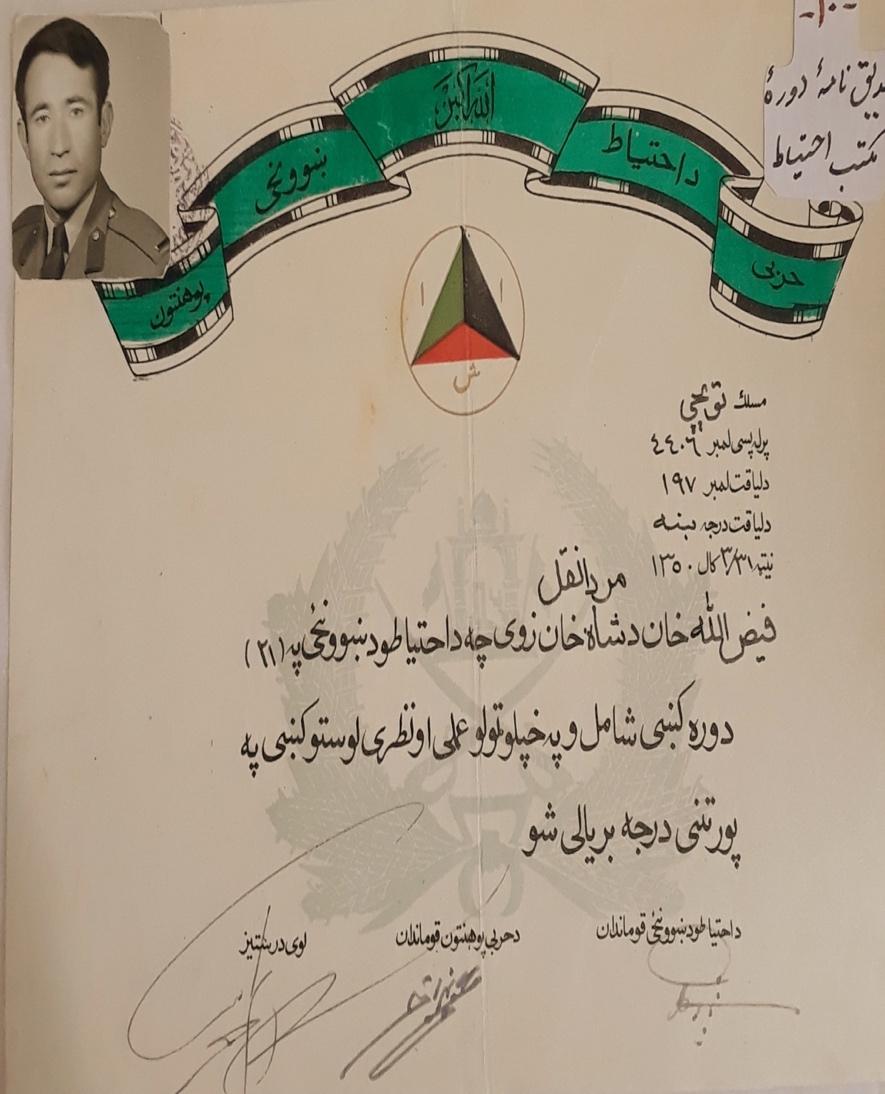 -۱۰-
دیق نامهٔ دورهٔ
مکتب احتیاط
الله اکبر
حربی
د احتیاط
ښوونځی
پوهنتون
ا ا
ش
مسلك توپچي
پرله پسی لمبر ٤٤٠٦
دلیاقت لمبر ۱۹۷
دلیاقت درجه ښه
نیټه ۳/۳۱ کال ۱۳٥۰
فیض الله خان د شاه خان زوی چه د احتیاط د ښوونځی په (۲۱)
دوره کښی شامل و په خپلو ټولو عملی او نظری لوستو کښی په
پورتنی درجه بریالی شو
د احتیاط د ښوونځی قوماندان
د حربی پوهنتون قوماندان
لوی درستیز